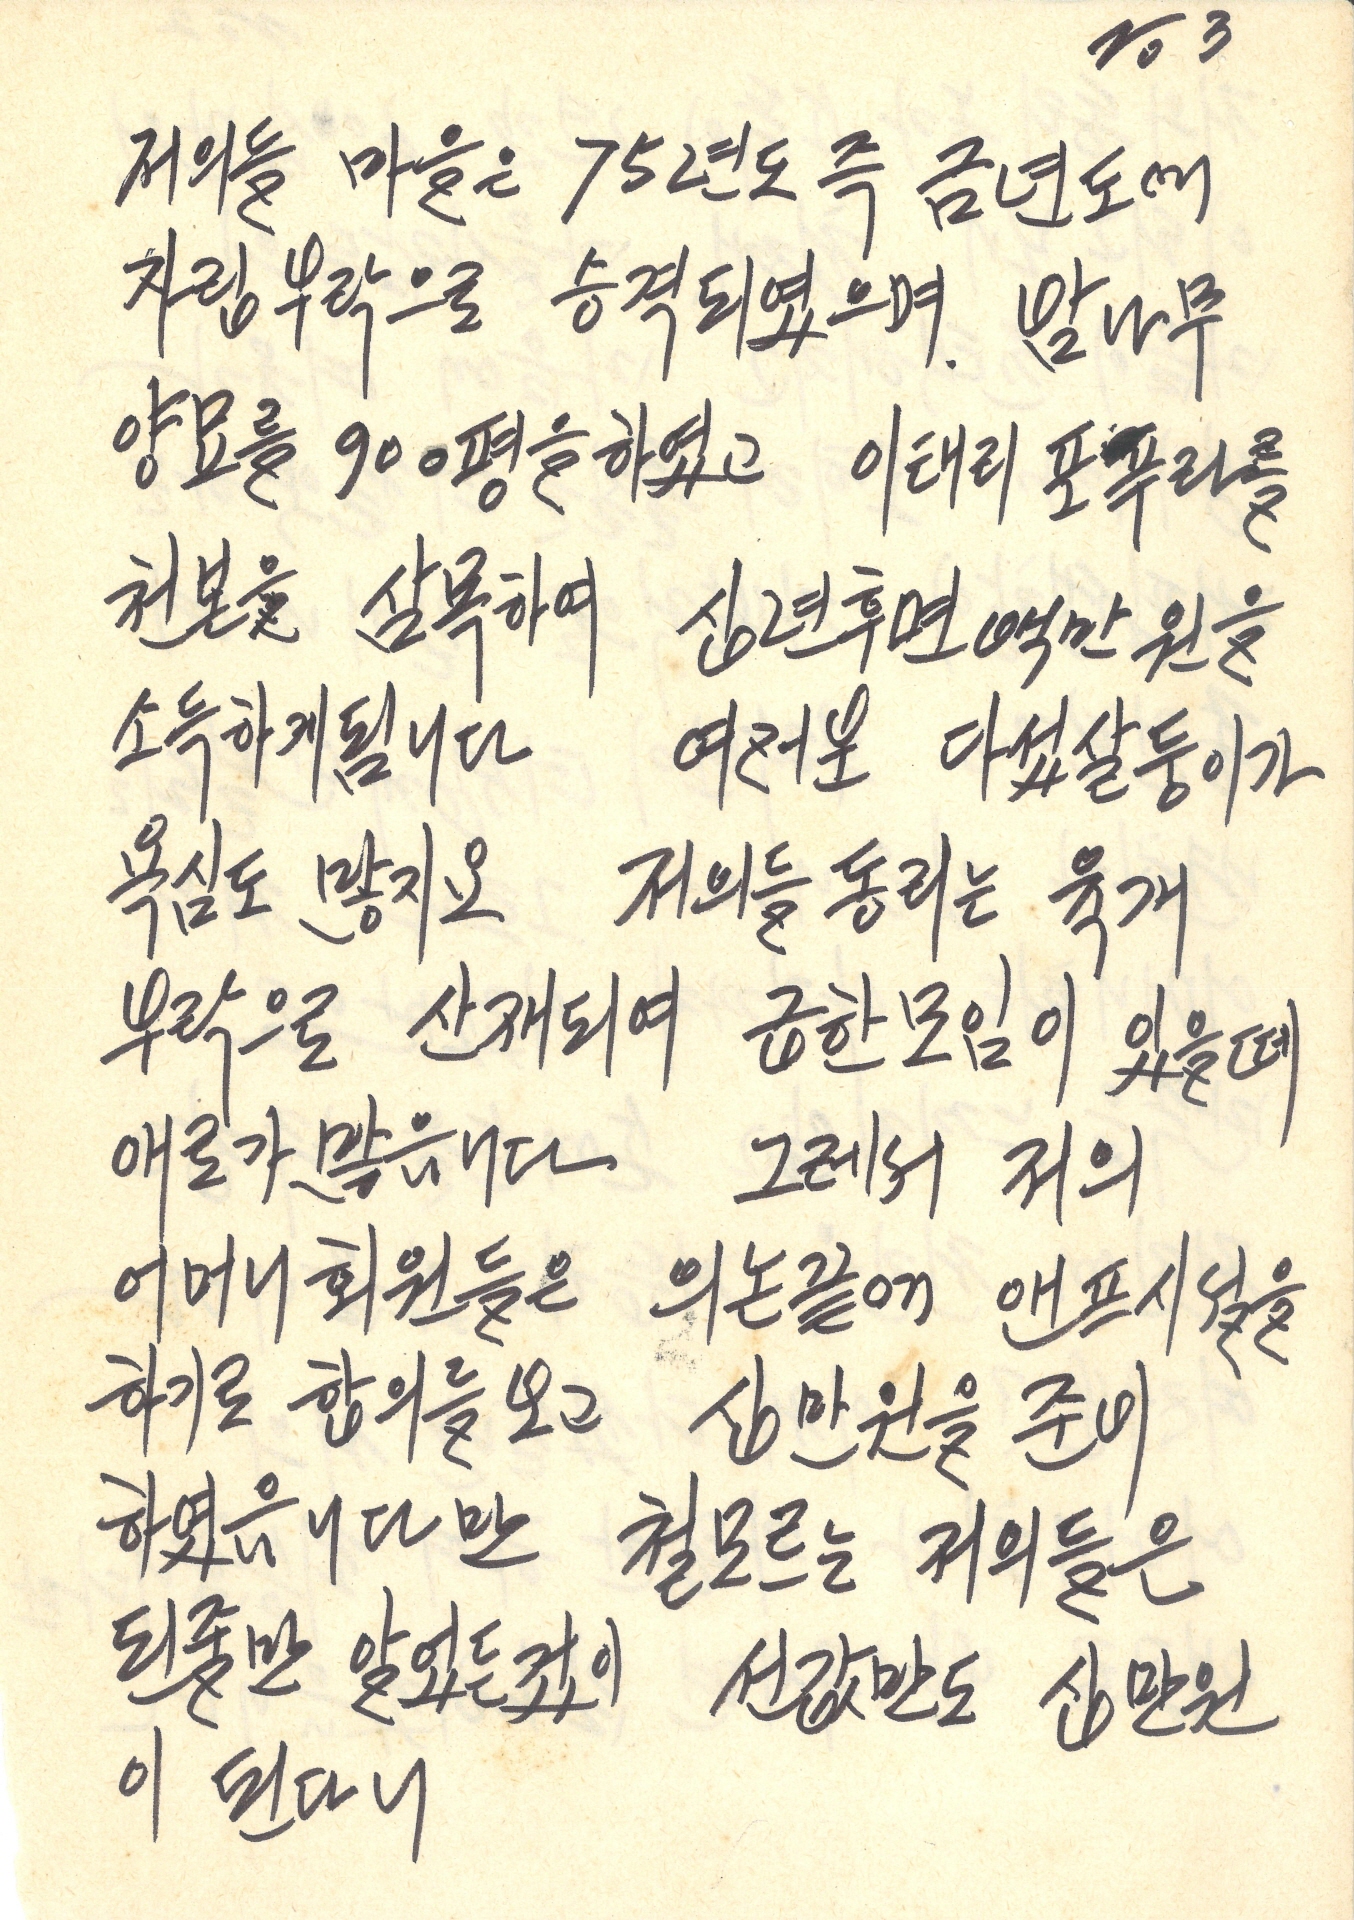 No 3
저의들 마을은 75년도 즉 금년도에
자립부락으로 승격되였으며. 밤나무
양묘를 900평을하였고 이태리 포푸라를
천본을 삽목하여 십년후면 백만원을
소득하게됨니다 여러분 다섰살둥이가
욕심도 많지요 저의들동리는 육개
부락으로 산재되여 급한모임이 있을떼
애로가 많읍니다 그레서 저의
어머니회원들은 의논끝에 앤프시설을
하기로 합의를보고 십만원을 준비
하였읍니다만 철모르는 저의들은
된줄만 알었든것이 선값만도 십만원
이 된다니